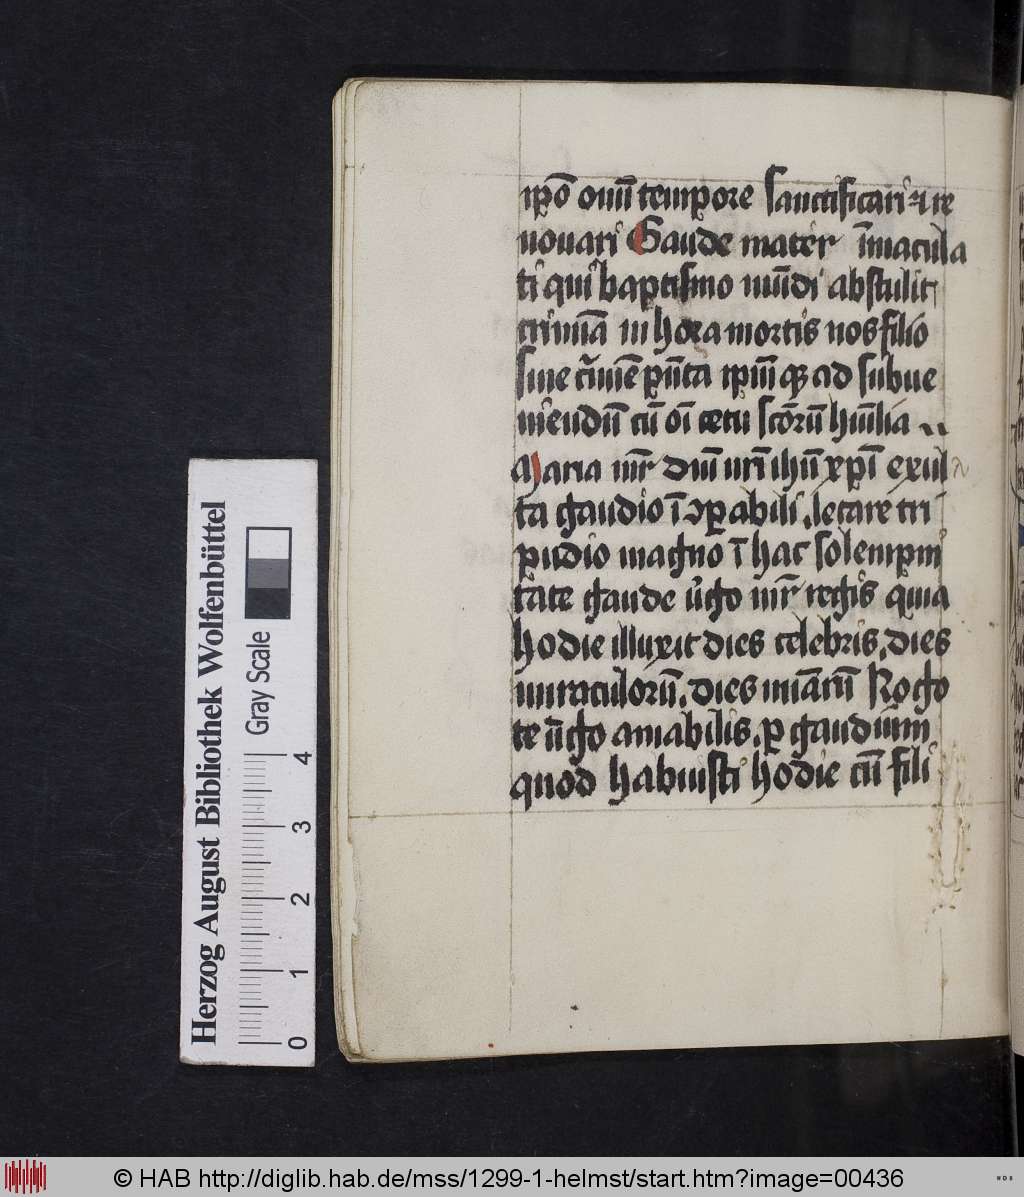 xp̄o om̄i tempore sanctificari ⁊ re
nouari Gaude mater īmacula
ti qui baptismo mūdi abstulit
crimīa in hora mortis nos filio
sine cͥmīe p̄n̄ta
ad subue
niendū cū oī cetu sc̄orū hūilia
Maria mr̄ dn̄i nr̄i ihū xp̄i exul
ta gaudio īꝯꝑabili, letare tri
pudio magno ī hac solempni
tate gaude v̄go mr̄ regis quia
hodie illuxit dies celebris, dies
miraculorū, dies Rogo
te v̄go amabilis, ꝑ gaudium
quod habuisti hodie cū fili
Herzog August Bibliothek Wolfenbüttel
Gray Scale
0 1 2 3 4
© HAB http://diglib.hab.de/mss/1299-1-helmst/start.htm?image=00436